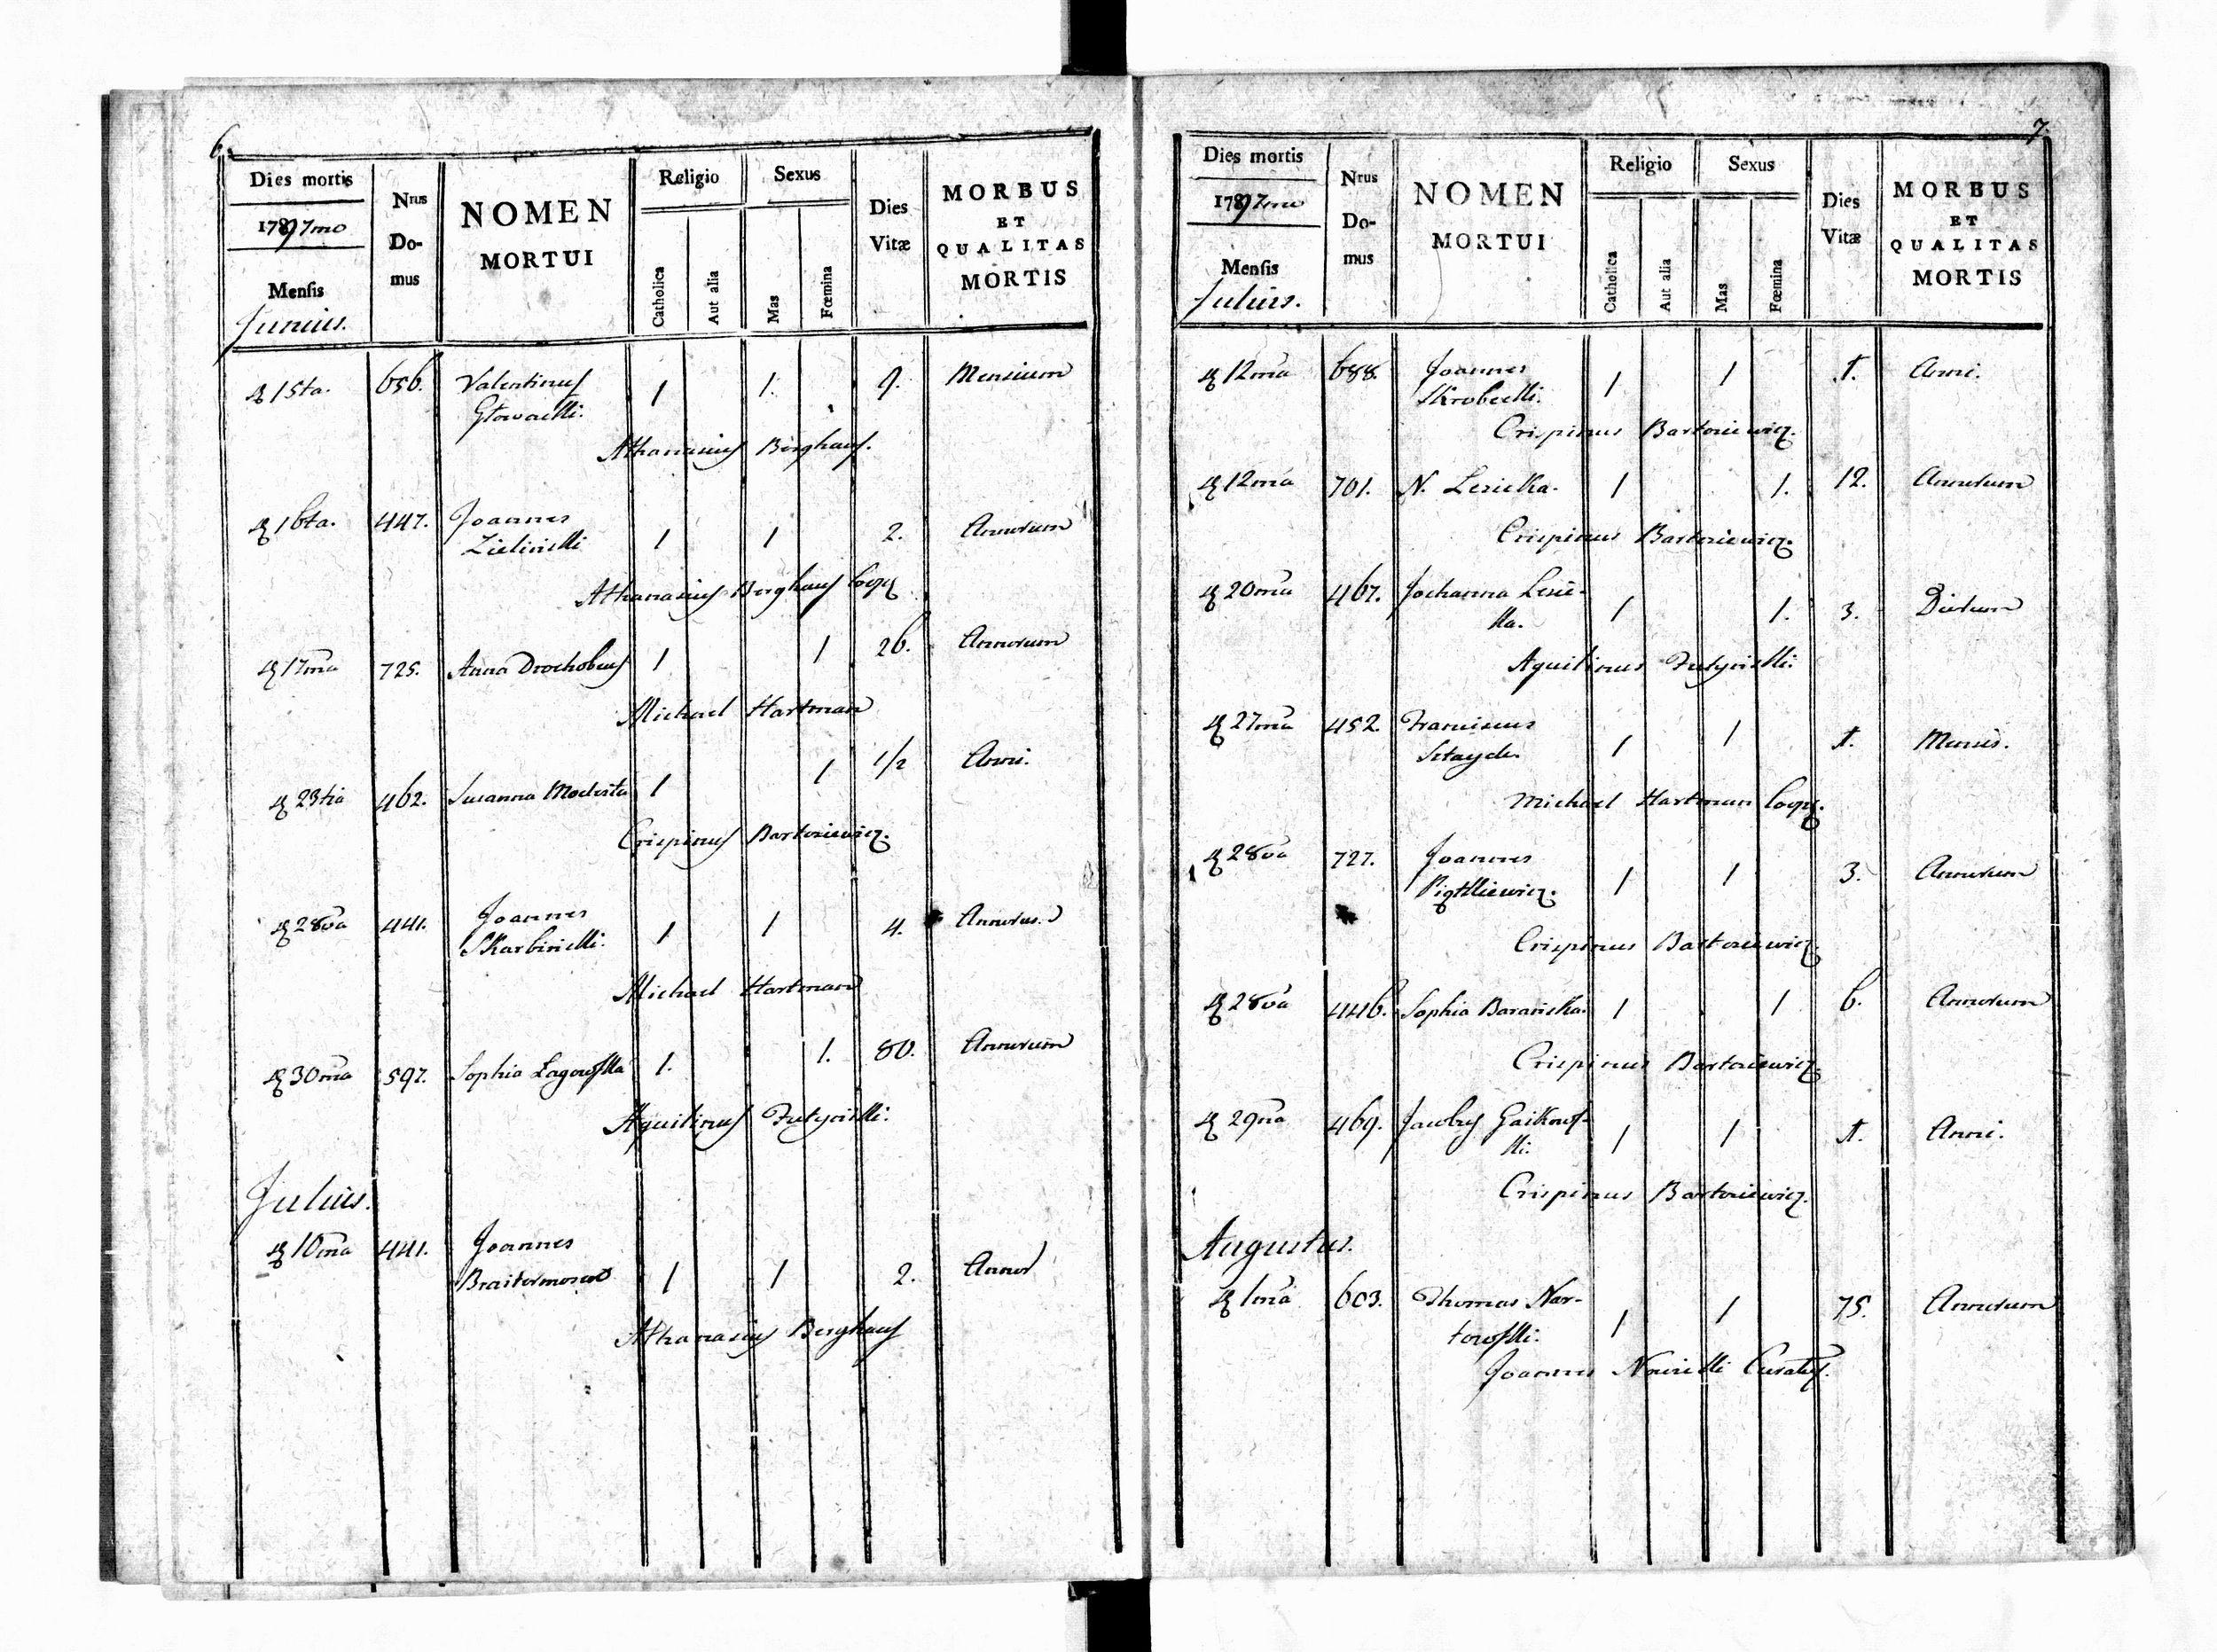 6.
Dies mortis
1797mo
Mensis
Junius.
Nrus Do-mus
NOMEN
MORTUI
Religio
Catholica
Aut alia
Sexus
Mas
Fœmina
Dies
Vitæ
MORBUS
ET
QUALITAS
MORTIS
15ta. 656. Valentinus 1 1. 9. Mensium
Głowacki.
Athanasius Berghaus.
16ta. 447. Joannes
Zielinski 1 1 2. Annorum
Athanasius Berghaus Coop
17ma 725. Anna Drochobus 1 1 26. Annorum
Michael Hartman
23tia 462. Susanna Modesta 1 1 1/2 Anni.
Crispinus Bartoziewicz.
28va 441. Joannes
Skarbinski. 1 1 4. Annorum
Michael Hartman
30ma 597. Sophia Lagowska 1. 1. 80. Annorum
Aquilinus
Julius.
10ma 441. Joannes
1 1 2. Annor
Athanasius Berghaus
7.
Dies mortis
1797mo
Mensis
Julius.
Nrus
Do-
mus
NOMEN
MORTUI
Religio
Catholica
Aut alia
Sexus
Mas
Fœmina
Dies
Vitæ
MORBUS
ET
QUALITAS
MORTIS
12ma 688. Joannes 1 1 1. Anni.
Skrobecki.
Crispinus Bartoziewicz.
12ma 701. N. Lesicka. 1 1. 12. Annorum
Crispinus Bartoziewicz.
20ma 467. Johanna Lesic-
ka. 1 1. 3. Dierum
Aquilinus
27ma 452. Franciscus
1 1 1. Mensis.
Michael Hartman Coop.
28va 727. Joannes
Piątkiewicz. 1 1 3. Annorum
Crispinus Bartoziewicz.
28va 446. Sophia Baranska. 1 1 6. Annorum
Crispinus Bartoziewicz.
29na 469. Jacobus Gaikows-
ki. 1 1 1. Anni.
Crispinus Bartoziewicz.
Augustus.
1ma 603. Thomas Nar-
towski. 1 1 75. Annorum
Joannes Curatus.